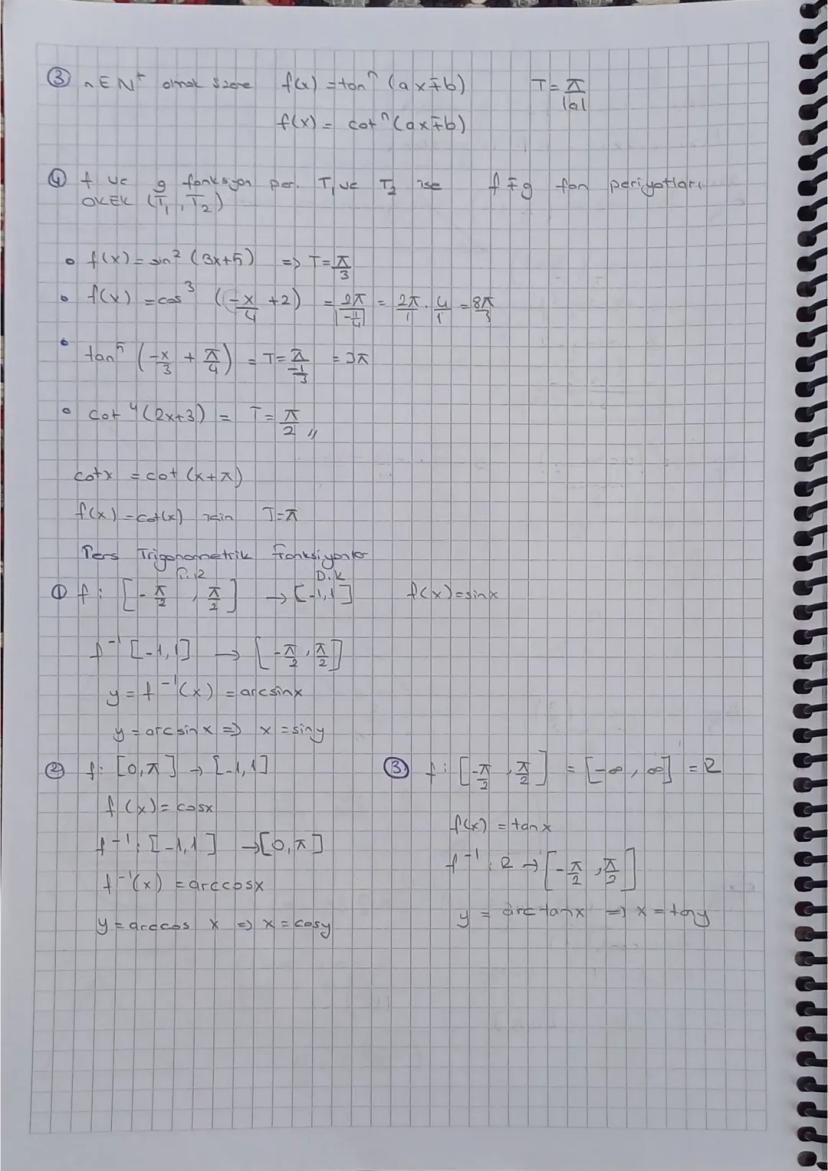 ③ n∈N⁺ olmak üzere f(x) = tanⁿ (ax∓b) T = π/|a|
f(x) = cotⁿ (ax∓b)
④ f ve g fonksiyon per. T₁ ve T₂ ise f∓g fon periyotları
OKEK (T₁, T₂)
• f(x) = sin² (3x+5) => T = π/3
• f(x) = cos³ (-x/4 + 2) = 2π/|-1/4| = 2π/1 · 4/1 = 8π/1
• tan⁵ (-x/3 + π/4) = T = π/(-1/3) = 3π
• cot⁴ (2x+3) = T = π/2 //
cotx = cot (x+π)
f(x) = cot(x) için T=π
Ters Trigonometrik Fonksiyonlar
D.K
① f: [-π/2, π/2] → [-1,1] f(x) = sinx
f⁻¹ [-1,1] → [-π/2, π/2]
y = f⁻¹(x) = arcsinx
y = arcsin x => x = siny
② f: [0,π] → [-1,1]
f(x) = cosx
f⁻¹: [-1,1] → [0,π]
f⁻¹(x) = arccosx
y = arccos x => x = cosy
③ f: [-π/2, π/2] = [-∞, ∞] = R
f(x) = tanx
f⁻¹: R → [-π/2, π/2]
y = arctanx => x = tany